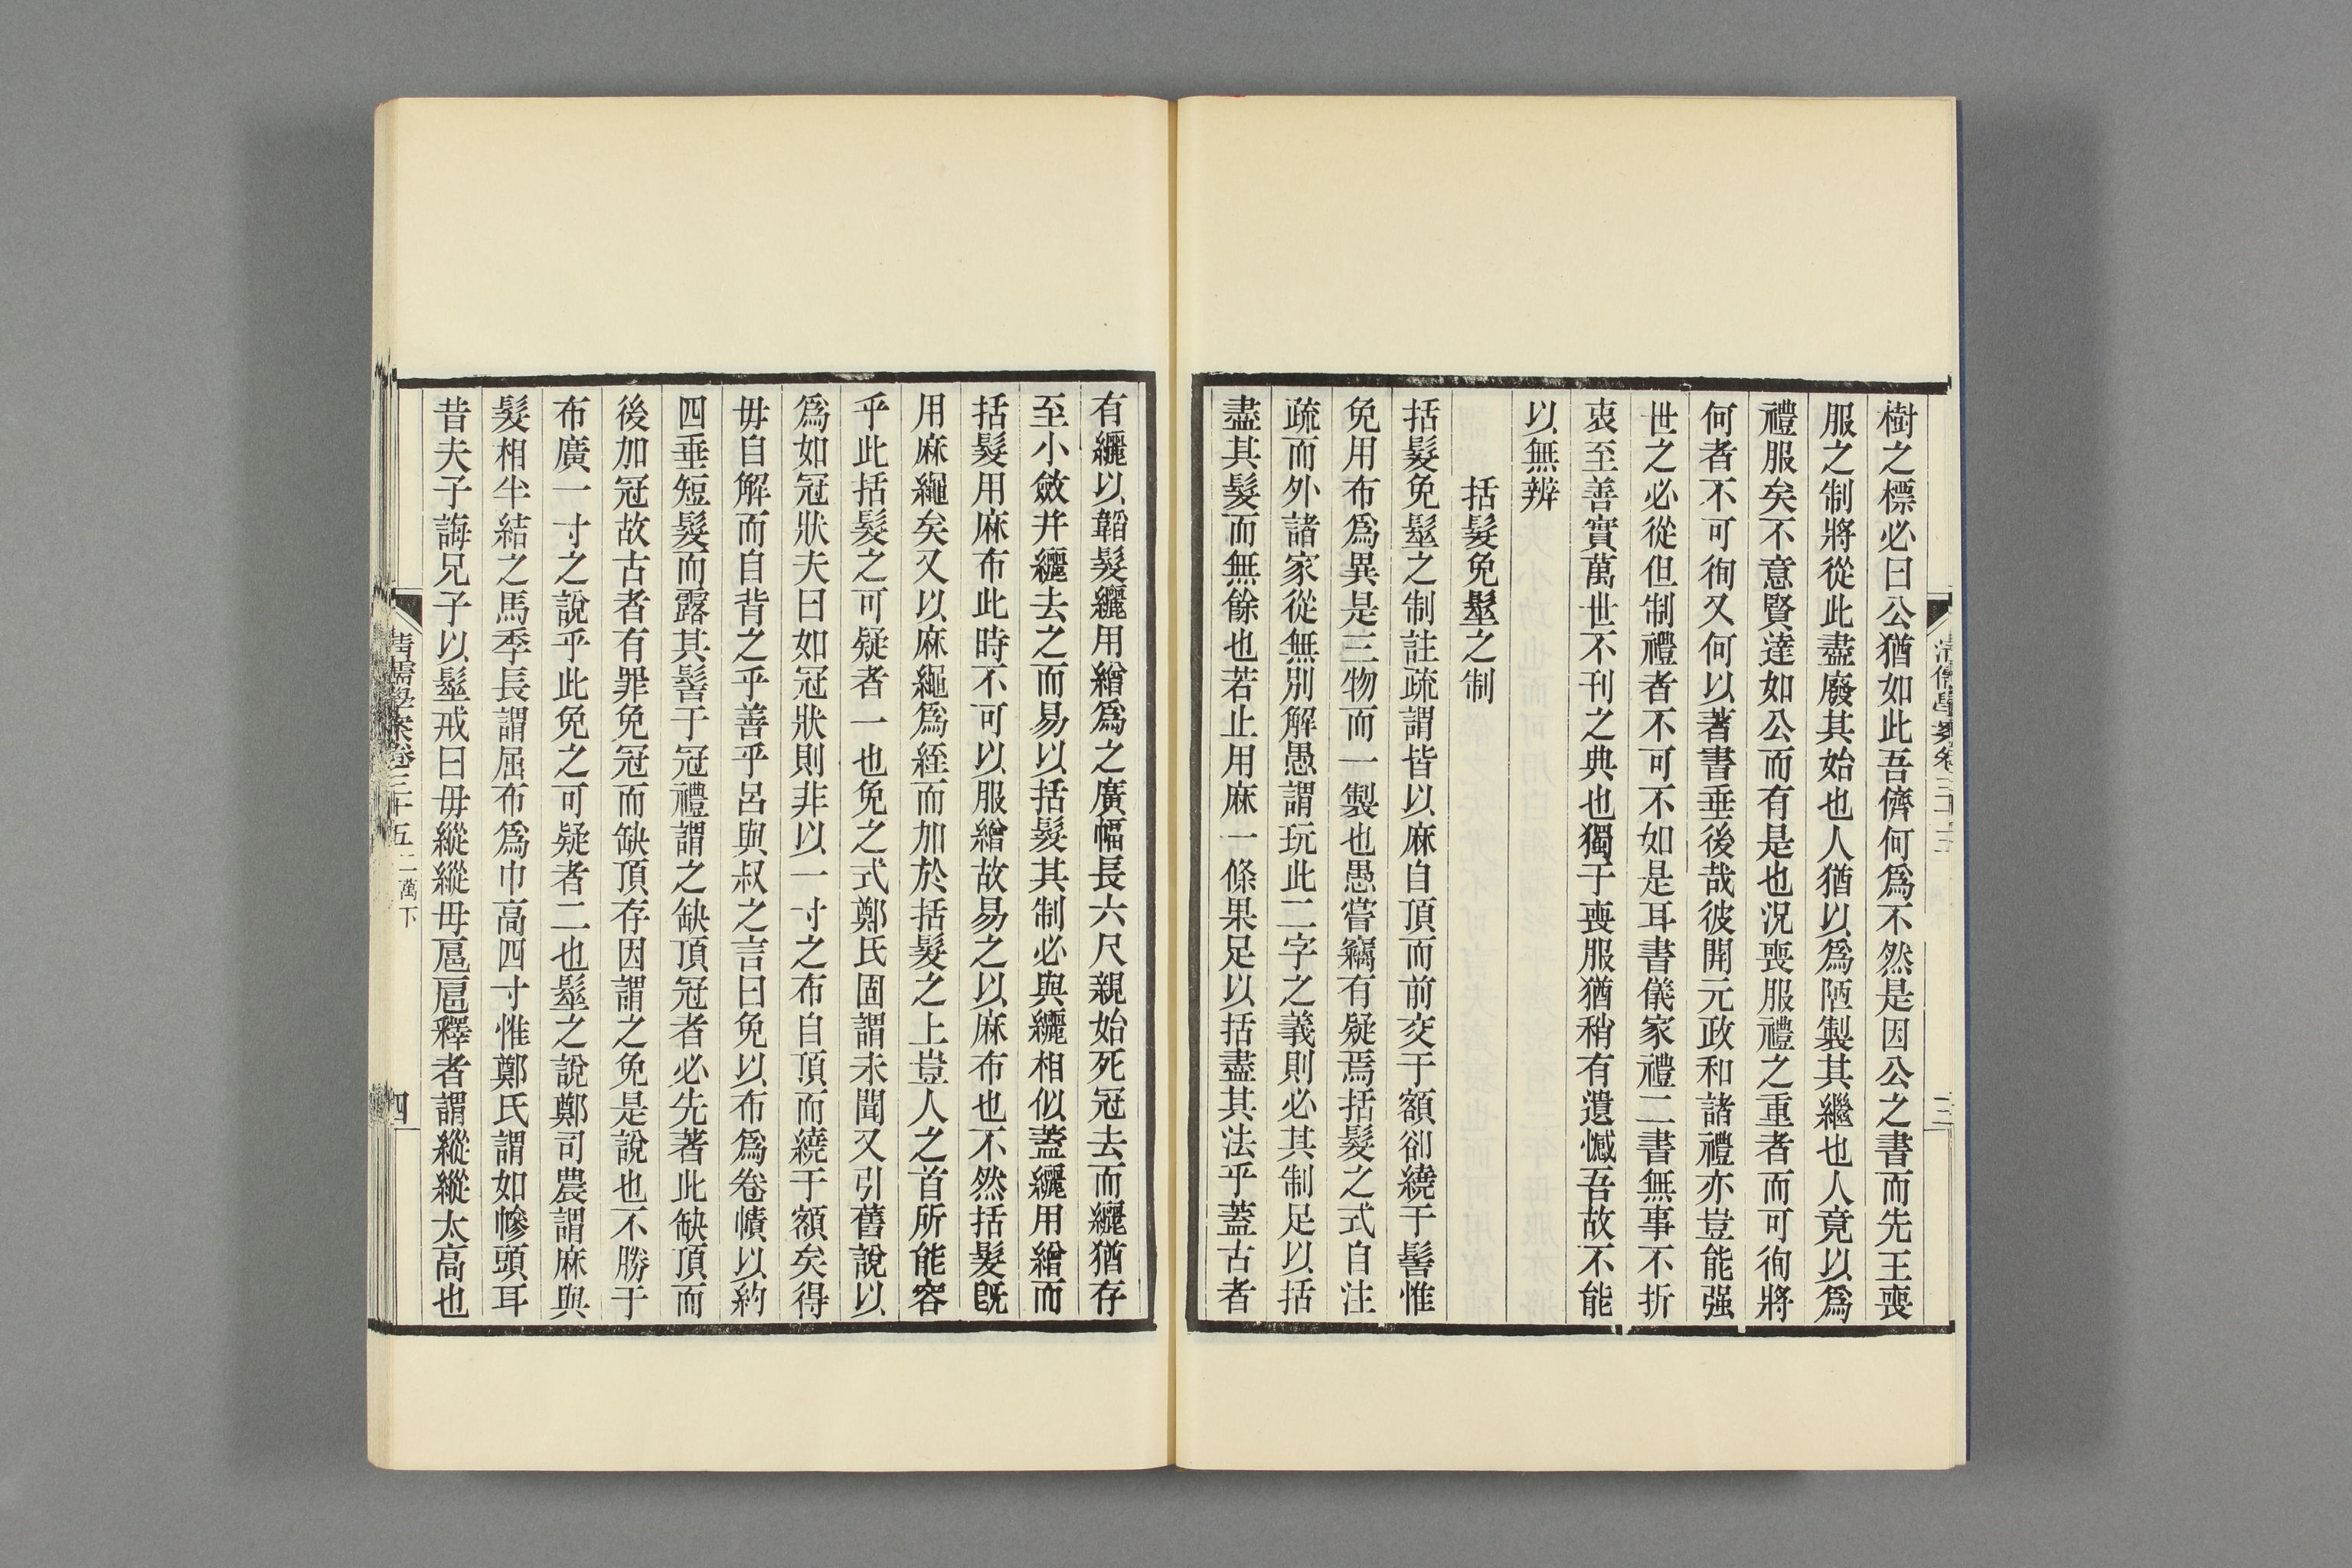 樹之標必曰公猶如此吾儕何爲不然是因公之書而先王喪
服之制將從此盡廢其始也人猶以爲陋製其繼也人竟以爲
禮服矣不意賢達如公而有是也況喪服禮之重者而可徇將
何者不可徇又何以著書垂後哉彼開元政和諸禮亦豈能强
世之必從但制禮者不可不如是耳書儀家禮二書無事不折
衷至善實萬世不刊之典也獨于喪服猶稍有遺憾吾故不能
以無辨
括髮免髽之制
括髮免髽之制註疏謂皆以麻自頂而前交于額卻繞于髻惟
免用布爲異是三物而一製也愚嘗竊有疑焉括髮之式自注
疏而外諸家從無別解愚謂玩此二字之義則必其制足以括
盡其髮而無餘也若止用麻一條果足以括盡其法乎蓋古者
有纚以韜髮纚用繒爲之廣幅長六尺親始死冠去而纚猶存
至小斂幷纚去之而易以括髮其制必與纚相似蓋纚用繒而
括髮用麻布此時不可以服繒故易之以麻布也不然括髮旣
用麻繩矣又以麻繩爲絰而加於括髮之上豈人之首所能容
乎此括髮之可疑者一也免之式鄭氏固謂未聞又引舊說以
爲如冠狀夫曰如冠狀則非以一寸之布自頂而繞于額矣得
毋自解而自背之乎善乎呂與叔之言曰免以布爲卷幘以約
四垂短髮而露其髻于冠禮謂之缺頂冠者必先著此缺頂而
後加冠故古者有罪免冠而缺頂存因謂之免是說也不勝于
布廣一寸之說乎此免之可疑者二也髽之說鄭司農謂麻與
髮相半結之馬季長謂屈布爲巾高四寸惟鄭氏謂如幓頭耳
昔夫子誨兄子以髽戒曰毋縱縱毋扈扈釋者謂縱縱太高也
清儒學案卷三十五 二萬下
四